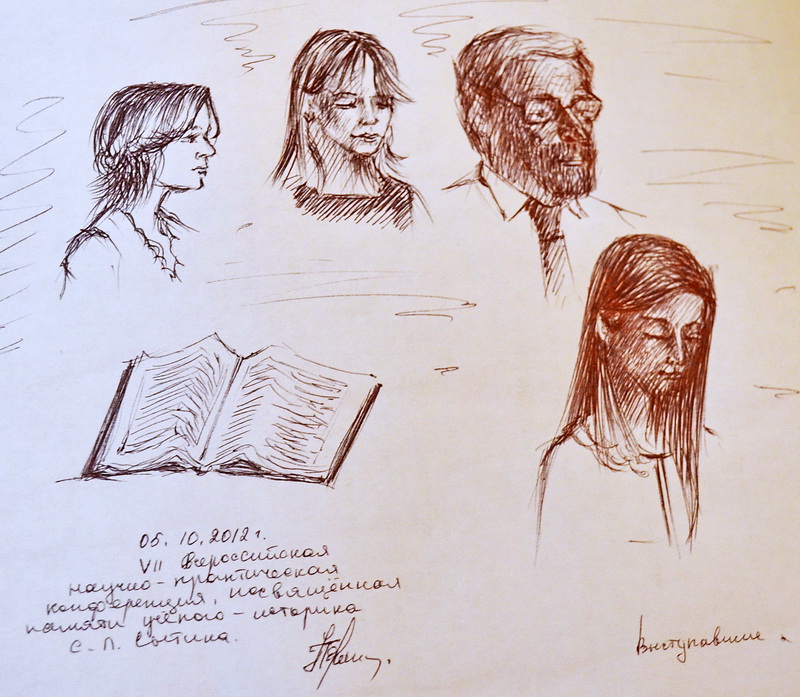 05.10.2012 г.
VII Всероссийская
научно-практическая
конференция, посвящённая
памяти учёного-историка
С.Л. Сытина.
Выступавшие.